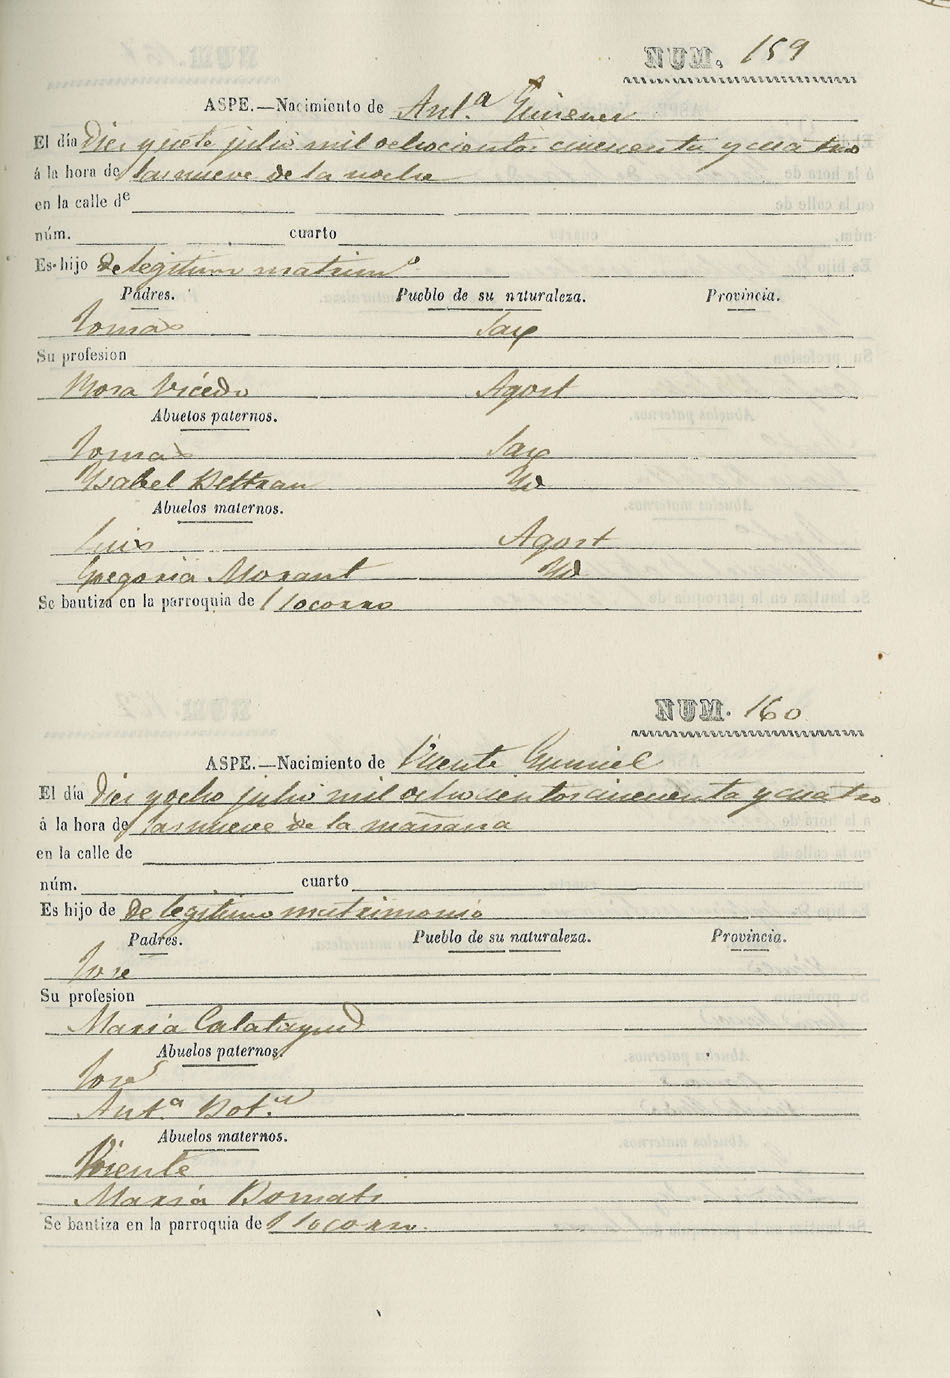 NUM. 159
ASPE.—Nacimiento de Ant.ª Gimenez
El día Diez y siete julio mil ochocientos cincuenta y cuatro
á la hora de las nueve de la noche
en la calle de
núm. cuarto
Es hijo de legitimo matrim.º
Padres. Pueblo de su naturaleza. Provincia.
Tomas Sax
Su profesion
Rosa Vicedo Agost
Abuelos paternos.
Tomas Sax
Ysabel Beltran Yd
Abuelos maternos.
Luis Agost
Gregoria Morant Yd
Se bautiza en la parroquia de Socorro
NUM. 160
ASPE.—Nacimiento de Vicente Gumiel
El día Diez y ocho julio mil ochocientos cincuenta y cuatro
á la hora de las nueve de la mañana
en la calle de
núm. cuarto
Es hijo de de legitimo matrimonio
Padres. Pueblo de su naturaleza. Provincia.
Jose
Su profesion
Maria Calatayud
Abuelos paternos.
Jose
Ant.ª Bot.ª
Abuelos maternos.
Vicente
Maria
Se bautiza en la parroquia de Socorro.